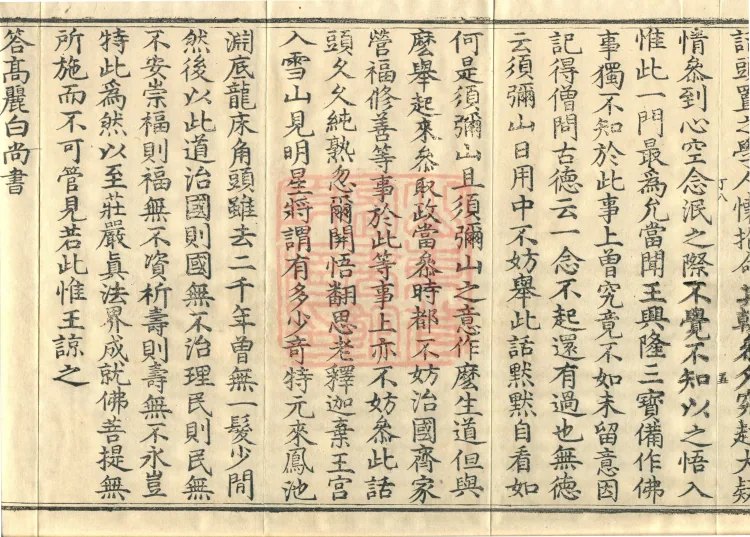 話頭置之學人懷抱令其叅久突起大疑
情叅到心空念泯之際不覺不知以之悟入
丁八
五
惟此一門最爲允當聞王興隆三寶備作佛
事獨不知於此事上曾究竟不如未留意因
記得僧問古德云一念不起還有過也無德
云須彌山日用中不妨舉此話黙黙自看如
何是須彌山且須彌山之意作麽生道但與
麽舉起來叅取政當叅時都不妨治國齊家
營福修善等事於此等事上亦不妨叅此話
頭久久純熟忽爾開悟翻思老釋迦棄王宮
入雪山見明星將謂有多少奇特元來鳳池
淵底龍床角頭雖去二千年曾無一髮少間
然後以此道治國則國無不治理民則民無
不安崇福則福無不資祈壽則壽無不永豈
特此爲然以至莊嚴眞法界成就佛菩提無
所施而不可管見若此惟王諒之
答髙麗白尚書